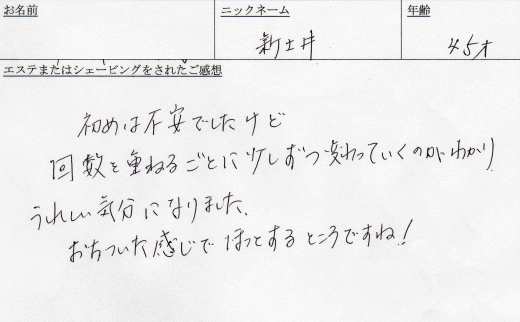 お名前
ニックネーム
年齢
新土井
45才
エステまたはシェービングをされたご感想
初めは不安でしたけど
回数を重ねるごとに少しずつ変わっていくのがわかり
うれしい気分になりました。
おちついた感じでほっとするところですね!